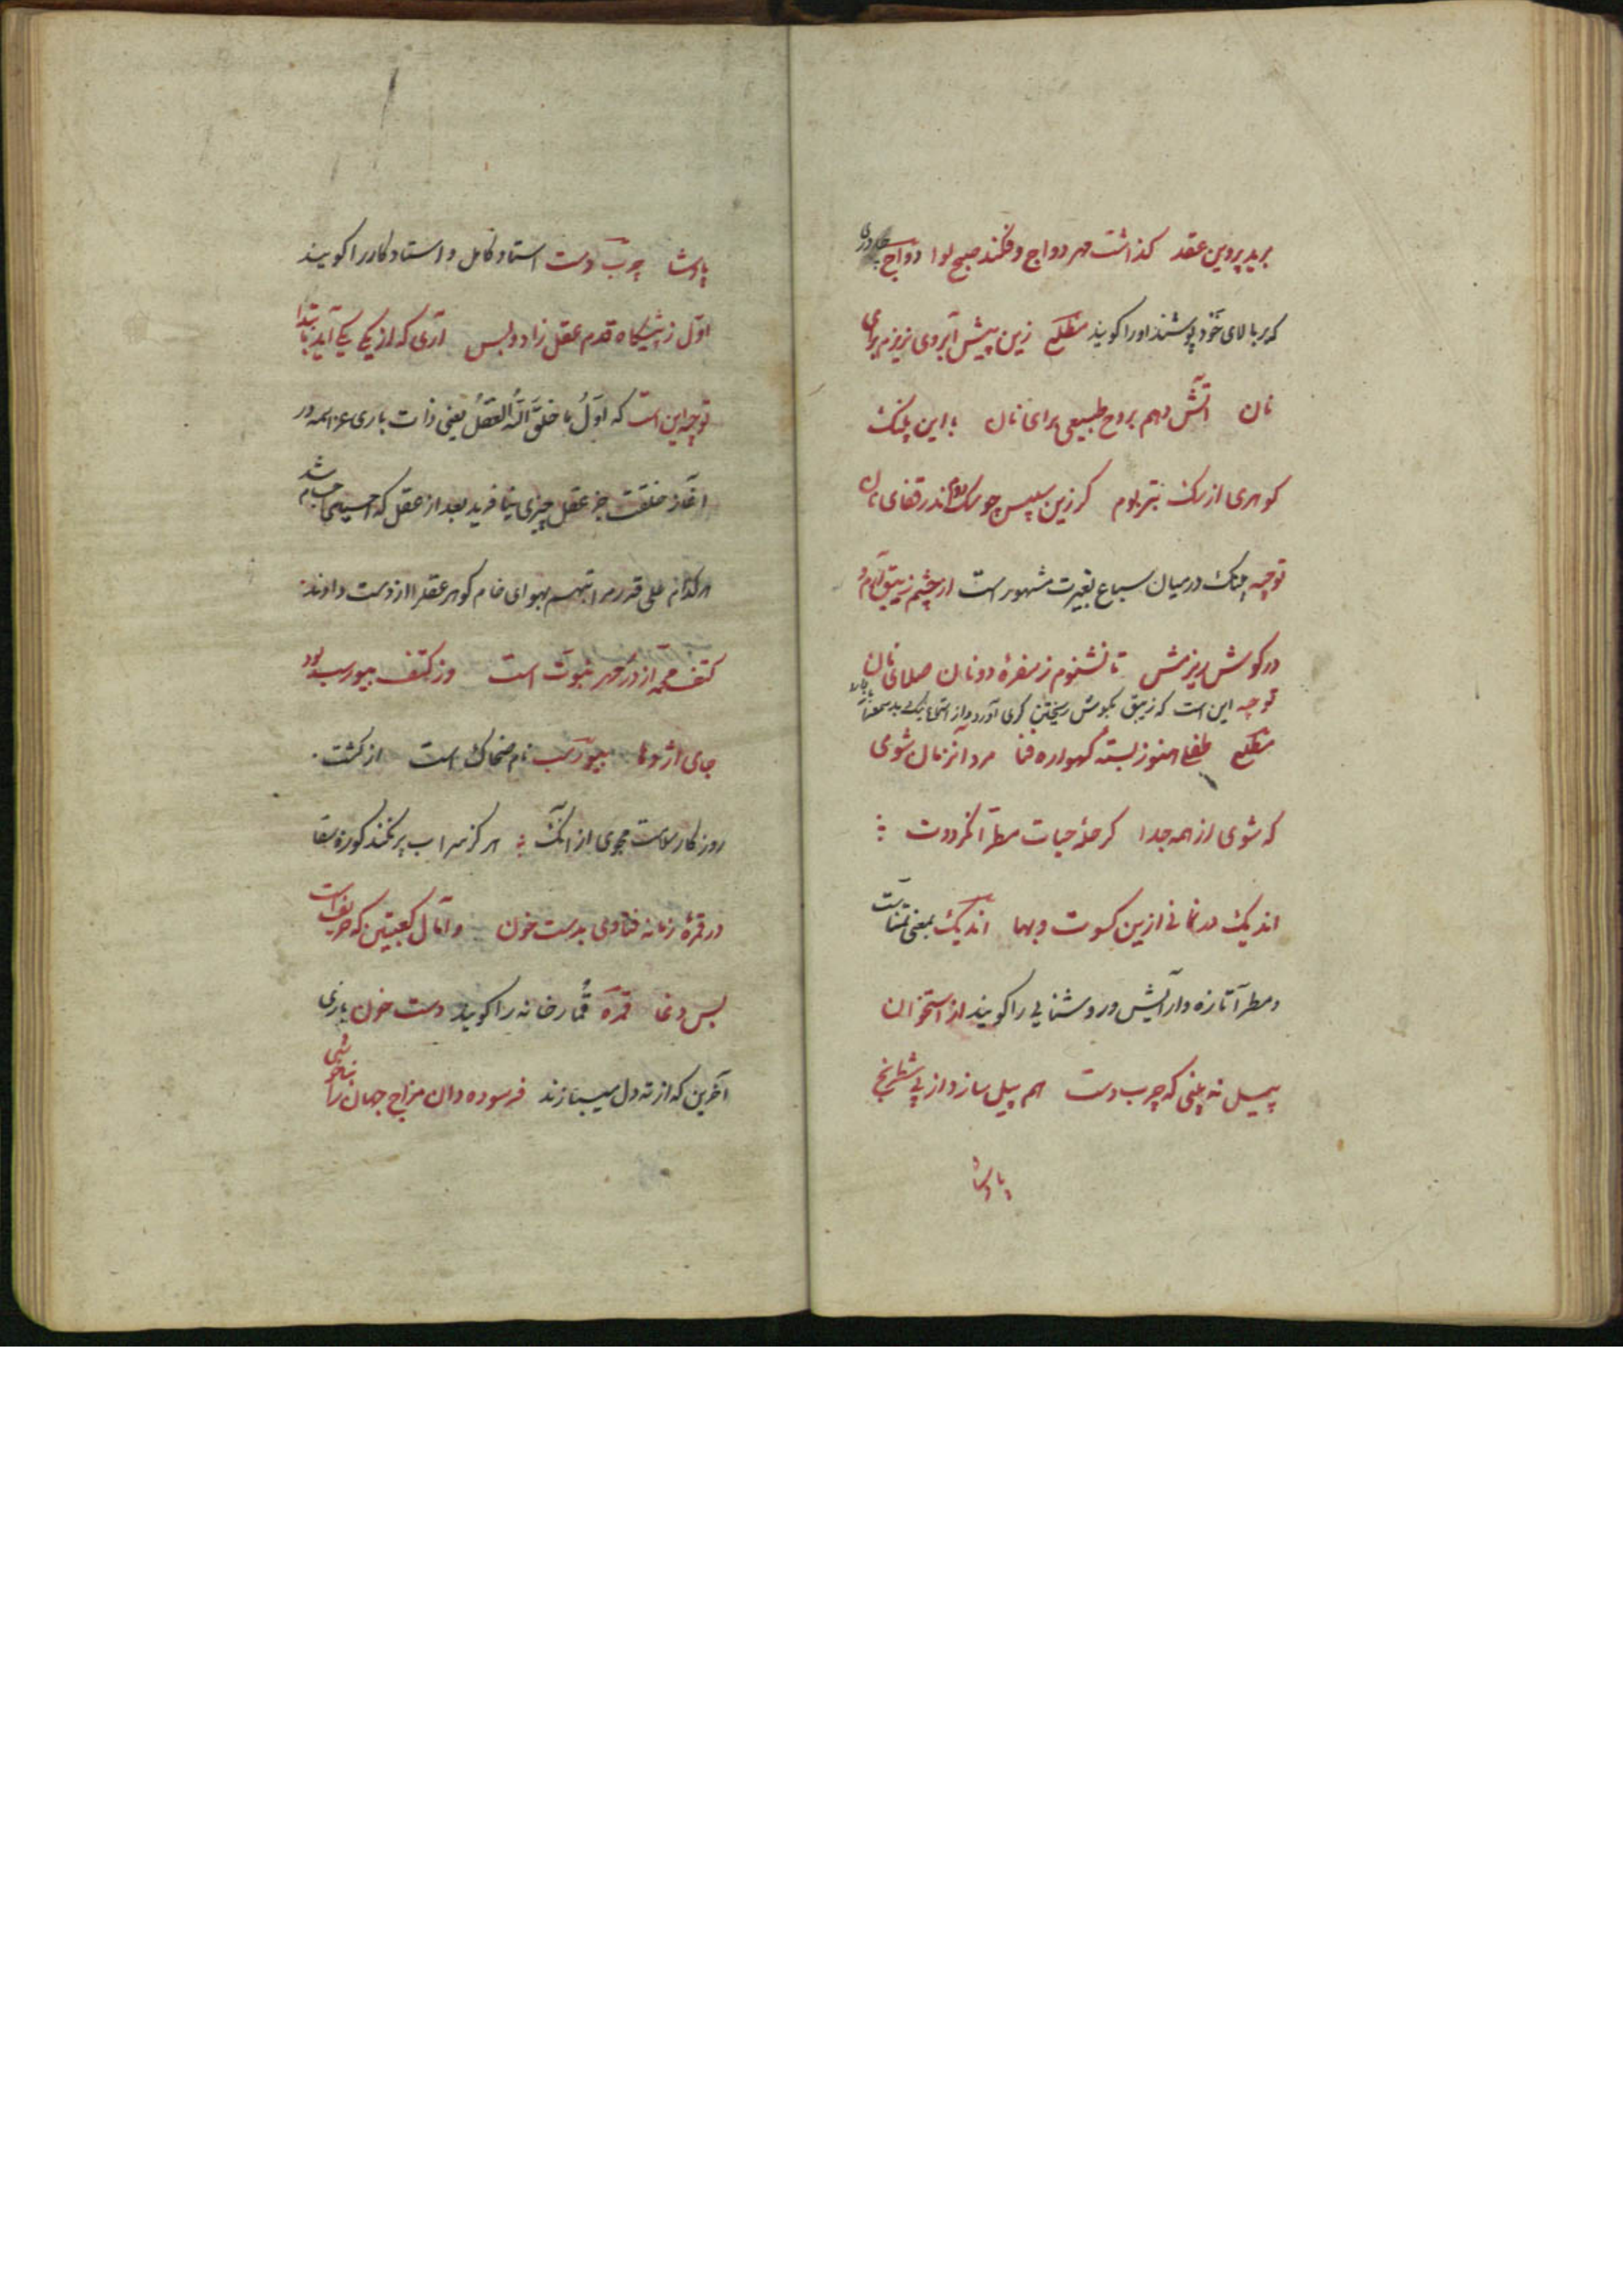 برید پروین عقد کذاشت مهر دواج و فکند صبح لوا دواج چادری
که بر بالای خود پوشند اورا کویند مطلع زین پیش آبروی نریزم برای
نان آتش دهم بروح طبیعی برای نان با این پلنک
کوهری از سک بتر بوم کر زین سپس چو سک دوم اندر قفای نان
توجیه پلنک در میان سباع بغیرت مشهور است از چشم زیبق آرم و
در کوش ریزمش تا نشنوم ز سفره دونان صلای نان
توجیه این است که زیبق بکوش ریختن کری آورد
مطلع طفلی هنوز بسته کهواره فنا مرد آنزمان شوی
که شوی از همه جدا کر حله حیات مطرا نکرددت
اندیک در نمانی ازین کسوت و بها اندیک بمعنی تمناست
و مطرا تازه و آرایش و روشنایی را کویند از استخوان
پیل نه بینی که چرب دست هم پیل سازد از پی شطرنج
پادشا
پادشا چرب دست استاد کامل و استاد کار را کویند
اول ز پیشکاه قدم عقل زاد و بس آری که از یکی یکی آید بابتدا
توجیه این است که اَوَّلُ ما خلَقَ اللّهُ العَقلُ یعنی ذات باری عز اسمه در
آغاز خلقت جز عقل چیزی نیافرید بعد از عقل که
هر کدام علی قدر مراتبهم بهوای خام کوهر عقلرا از دست دادند
کتف محمد از در مهر نبوت است وز کتف بیورسب بود
جای اژدها بیورسب نام ضحاک است از کشت
روزکار سلامت مجوی از آنک هرکز سراب پر نکند کوزه سقا
در قمره زمانه فتادی بدست خون وامال کعبتین که حریف است
بس دغا قمره قمارخانه را کویند دست خون بازی
آخرین که از ته دل میبازند فرسوده دان مزاج جهان را بناخوشی